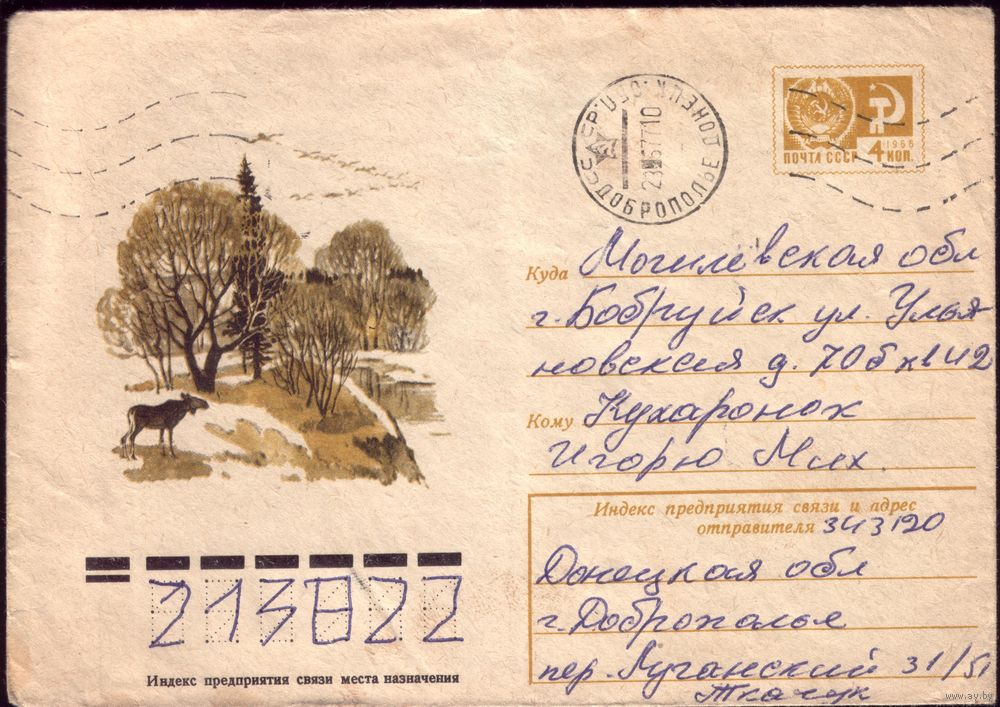 СССР ДОНЕЦК. ОБЛ.
ДОБРОПОЛЬЕ
ПОЧТА СССР 4 КОП.
1966
Куда Могилёвская обл
г. Бобруйск ул. Улья
новская д. 70б кв 42
Кому Кухаронок
Игорю Мих.
Индекс предприятия связи и адрес
отправителя 343120
Донецкая обл
г. Доброполья
пер. Луганский 31/51
Ткачук
213822
Индекс предприятия связи места назначения
www.ay.by